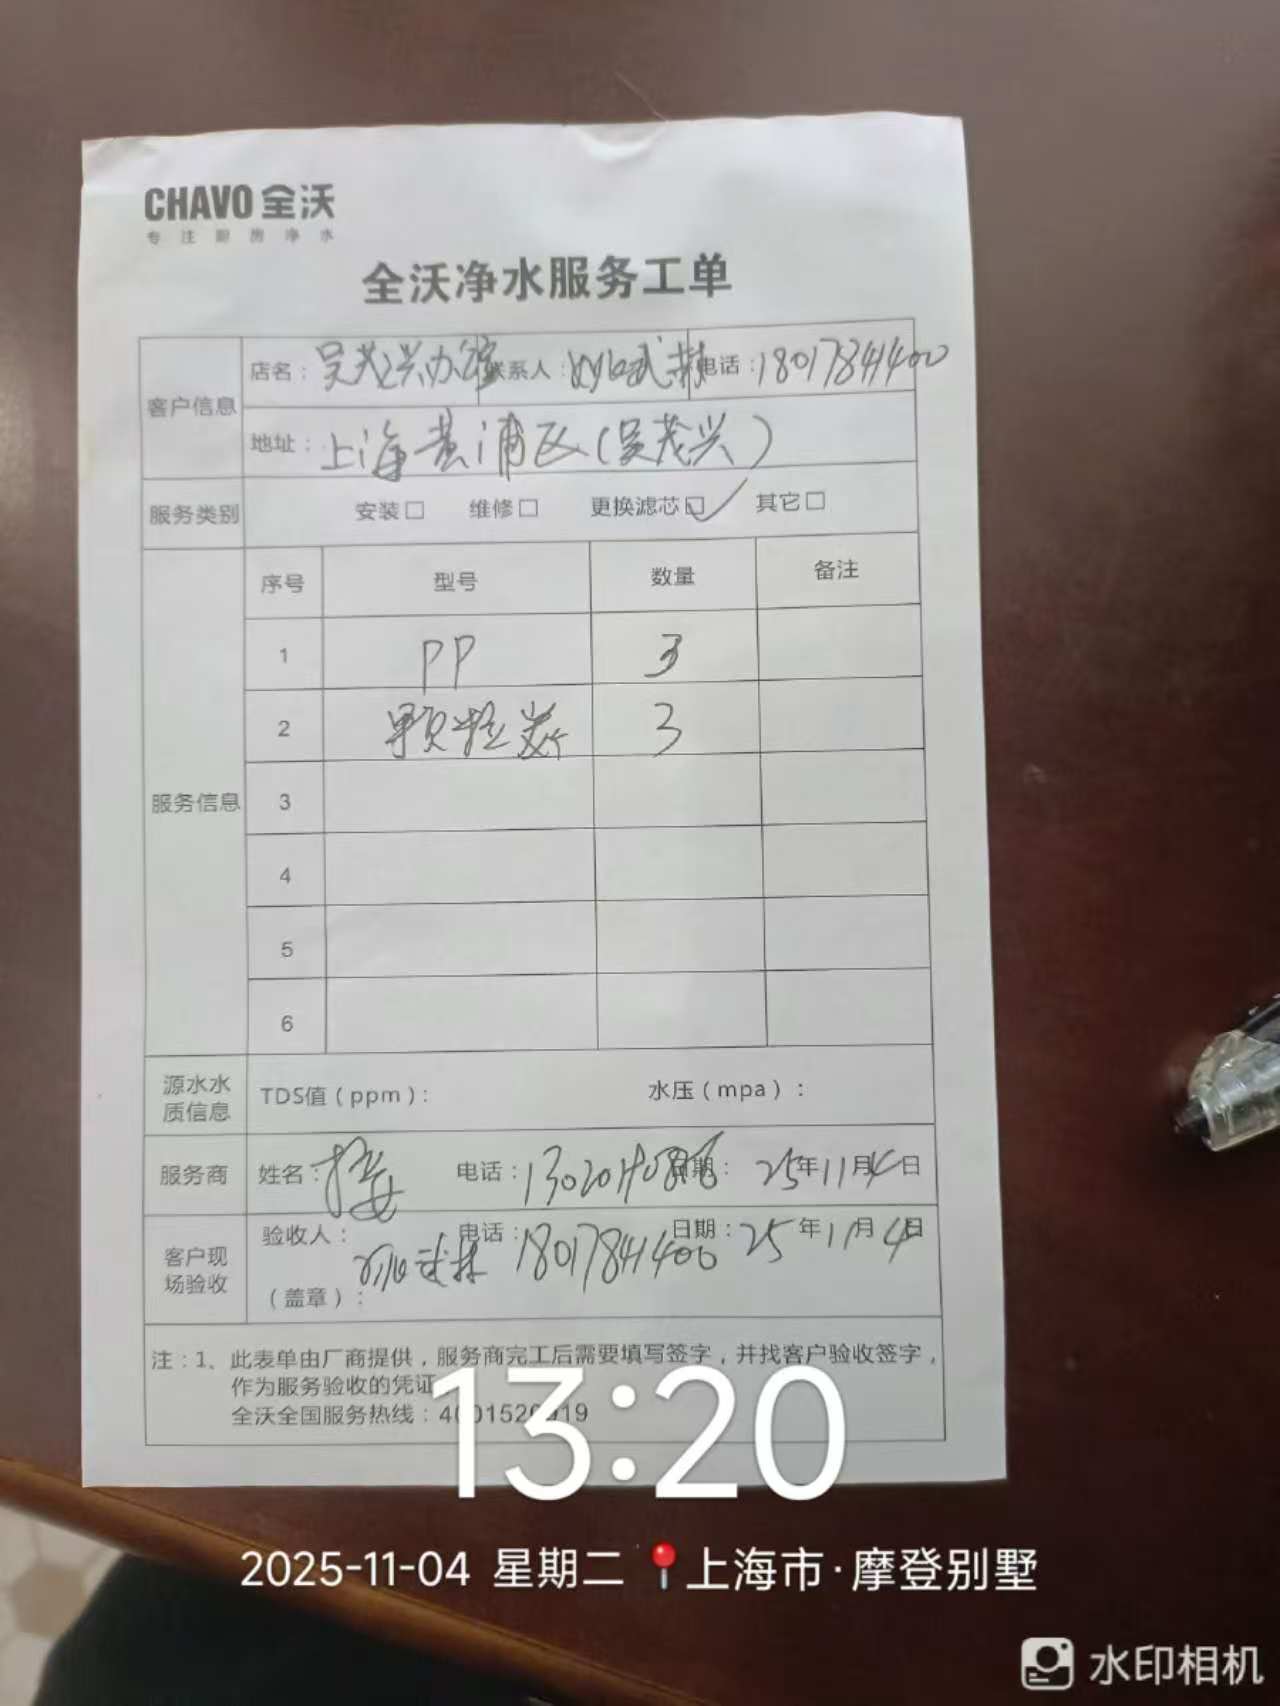 CHAVO 全沃
专注厨房净水
全沃净水服务工单
客户信息
店名：吴茂兴办 联系人： 武林 电话：18017841400
地址：上海黄浦区(吴茂兴)
服务类别 安装□ 维修□ 更换滤芯☑ 其它□
服务信息
序号 型号 数量 备注
1 PP 3
2 颗粒炭 3
3
4
5
6
源水水质信息 TDS值（ppm）： 水压（mpa）：
服务商 姓名： 电话： 日期： 25年11月4日
客户现场验收 验收人： 武林 电话：18017841400 日期：25年11月4日
（盖章）：
注：1、此表单由厂商提供，服务商完工后需要填写签字，并找客户验收签字，
作为服务验收的凭证
全沃全国服务热线：
13:20
2025-11-04 星期二 上海市·摩登别墅
水印相机